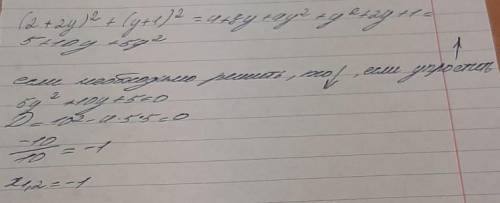 (2+2y)² + (y+1)² = 4+8y+4y²+y²+2y+1=
5+10y+5y²
если необходимо решить, то↓, если упростить ↑
5y²+10y+5=0
D=10²-4·5·5=0
-10/10 = -1
x1,2=-1